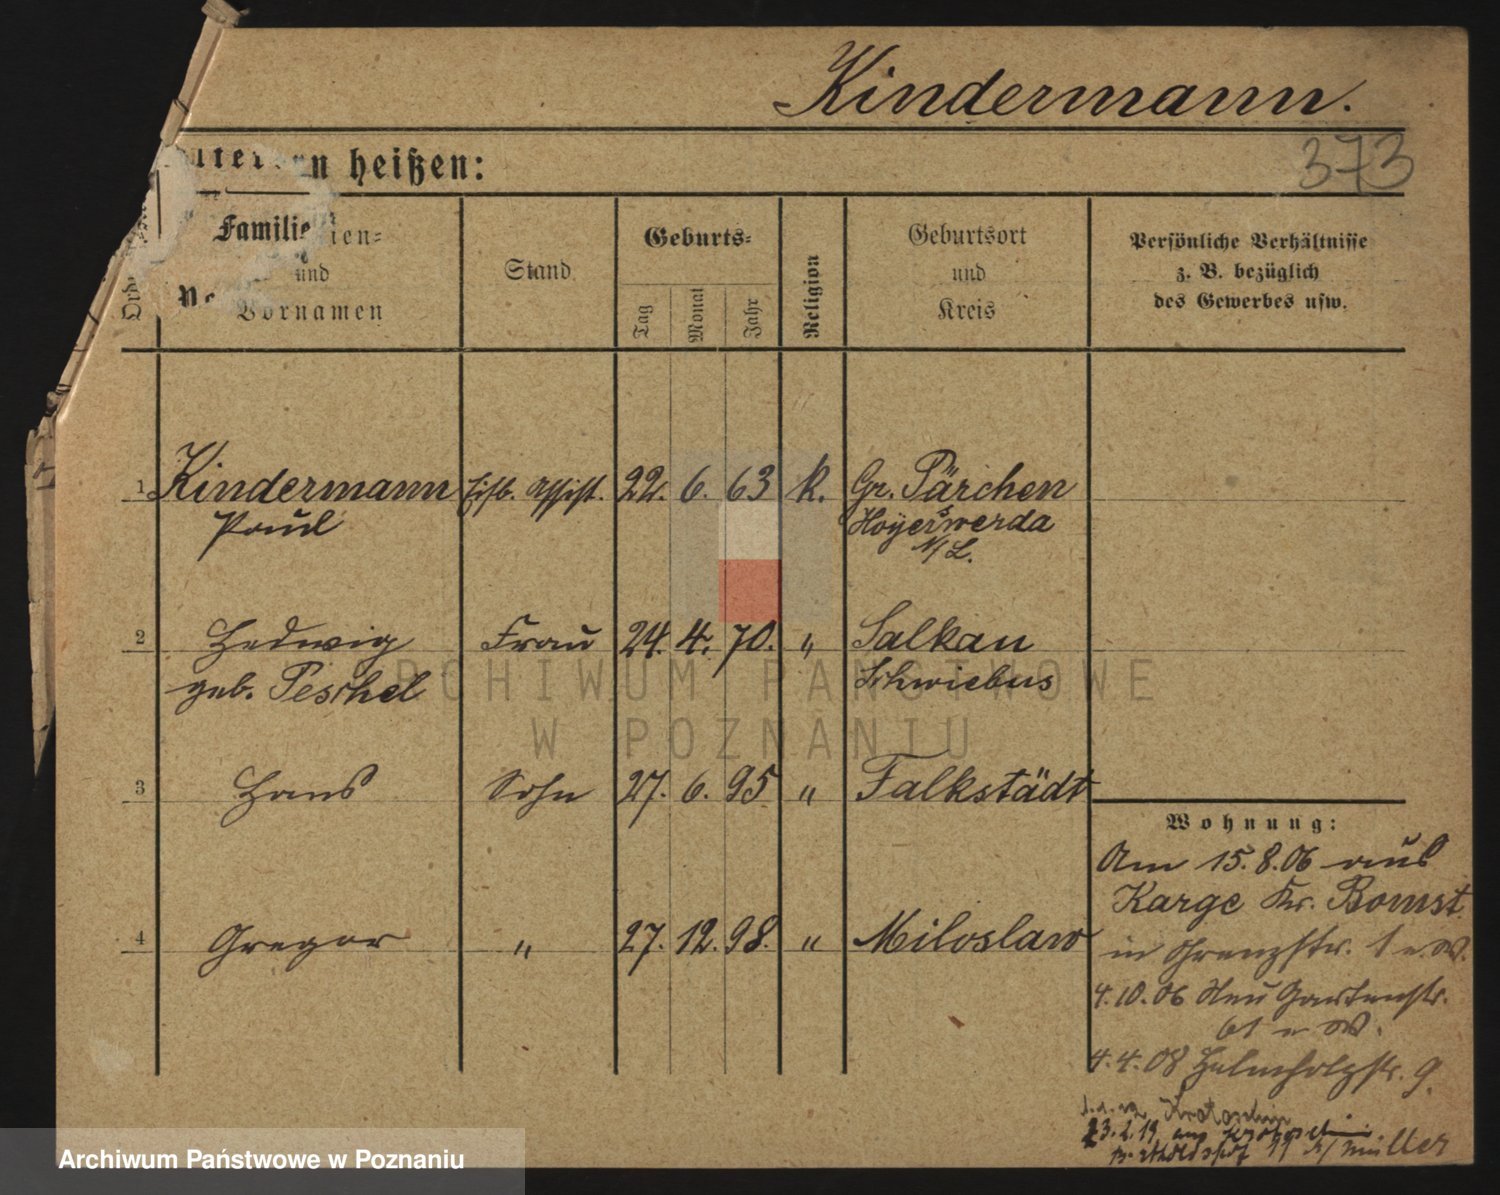 Kindermann.
373
heißen:
Familien-
und
Vornamen
Stand
Geburts-
Tag
Monat
Jahr
Religion
Geburtsort
und
Kreis
Persönliche Verhältnisse
z. B. bezüglich
des Gewerbes usw.
1 Kindermann Eisb. Assist. 22. 6. 63 k. Gr. Pärchen
Paul Hoyerswerda
N/L.
2 Hedwig Frau 24. 4. 70. „ Salkau
geb. Peschel Schwiebus
3 Hans Sohn 27. 6. 95 „ Falkstädt
Wohnung:
Am 15.8.06 aus
Karge Kr. Bomst
4 Gregor „ 27. 12. 98. „ Miloslaw
in Grenzstr. 1 e. W.
4.10.06 Neu Gartenstr.
61 e W.
4.4.08 Helmholzstr. 9.
Krotoschin
23.2.19 aus Krotoschin
11 b/ Müller
ARCHIWUM PAŃSTWOWE
W POZNANIU
Archiwum Państwowe w Poznaniu